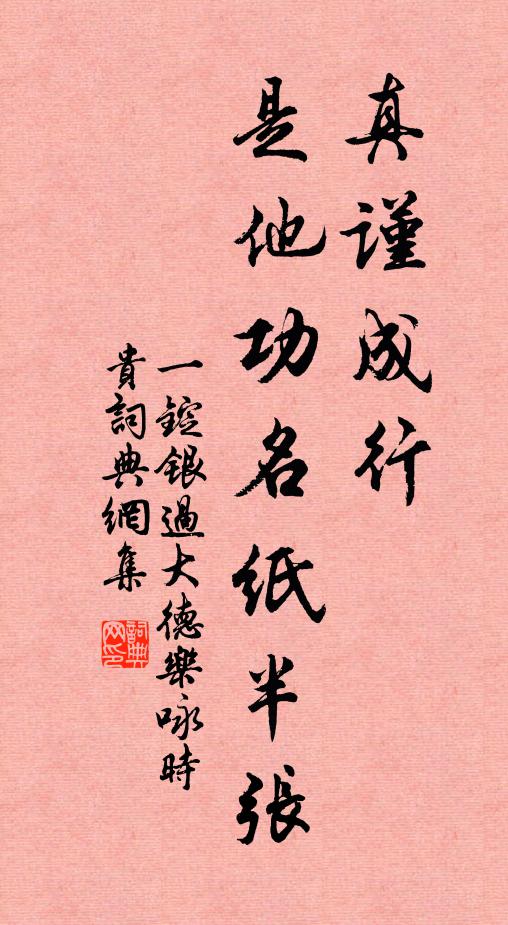 真謹成行
是他功名紙半張
一錠銀過大德樂咏時
貴詞典網集
詞典网印